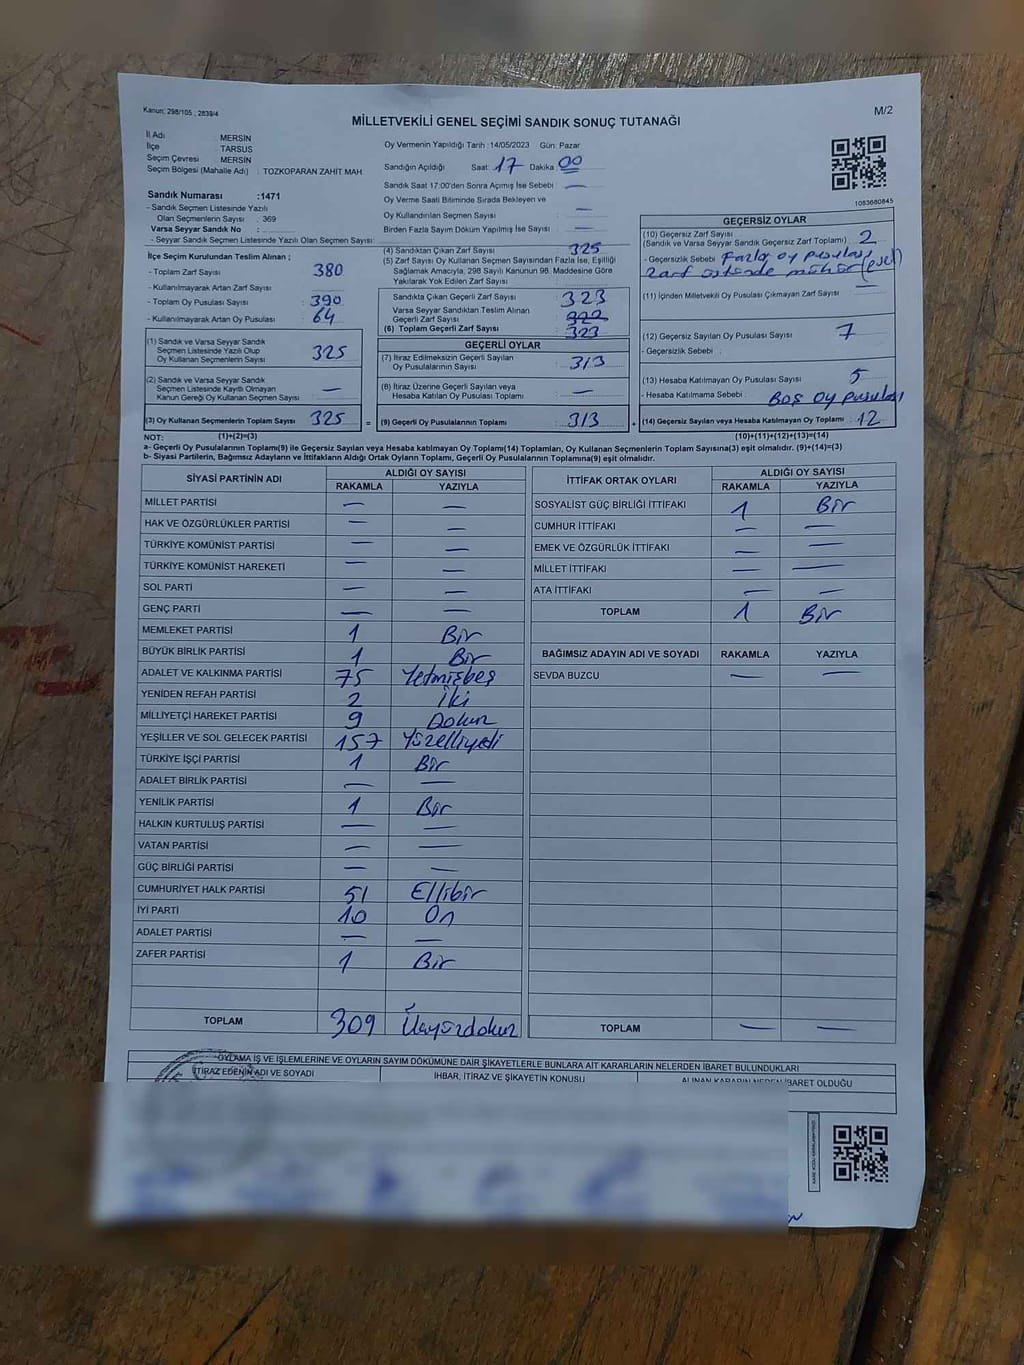 Kanun: 298/105 , 2839/4
M/2
MİLLETVEKİLİ GENEL SEÇİMİ SANDIK SONUÇ TUTANAĞI
İl Adı MERSİN
İlçe : TARSUS
Seçim Çevresi : MERSİN
Seçim Bölgesi (Mahalle Adı) : TOZKOPARAN ZAHİT MAH.
Sandık Numarası :1471
- Sandık Seçmen Listesinde Yazılı
Olan Seçmenlerin Sayısı : 369
Varsa Seyyar Sandık No :
- Seyyar Sandık Seçmen Listesinde Yazılı Olan Seçmen Sayısı:
Oy Vermenin Yapıldığı Tarih :14/05/2023 Gün: Pazar
Sandığın Açıldığı Saat: 17 Dakika: 00
Sandık Saat 17:00'den Sonra Açımış İse Sebebi : —
Oy Verme Saati Bitiminde Sırada Bekleyen ve
Oy Kullandırılan Seçmen Sayısı : —
Birden Fazla Sayım Döküm Yapılmış İse Sayısı : —
1083680845
İlçe Seçim Kurulundan Teslim Alınan ;
- Toplam Zarf Sayısı : 380
- Kullanılmayarak Artan Zarf Sayısı :
- Toplam Oy Pusulası Sayısı : 390
- Kullanılmayarak Artan Oy Pusulası : 64
(1) Sandık ve Varsa Seyyar Sandık
Seçmen Listesinde Yazılı Olup
Oy Kullanan Seçmenlerin Sayısı : 325
(2) Sandık ve Varsa Seyyar Sandık
Seçmen Listesinde Kayıtlı Olmayan
Kanun Gereği Oy Kullanan Seçmen Sayısı : —
(3) Oy Kullanan Seçmenlerin Toplam Sayısı : 325
(4) Sandıktan Çıkan Zarf Sayısı : 325
(5) Zarf Sayısı Oy Kullanan Seçmen Sayısından Fazla İse, Eşitliği
Sağlamak Amacıyla, 298 Sayılı Kanunun 98. Maddesine Göre
Yakılarak Yok Edilen Zarf Sayısı :
Sandıkta Çıkan Geçerli Zarf Sayısı : 323
Varsa Seyyar Sandıktan Teslim Alınan
Geçerli Zarf Sayısı :
(6) Toplam Geçerli Zarf Sayısı : 323
GEÇERLİ OYLAR
(7) İtiraz Edilmeksizin Geçerli Sayılan
Oy Pusulalarının Sayısı : 313
(8) İtiraz Üzerine Geçerli Sayılan veya
Hesaba Katılan Oy Pusulası Toplamı : —
= (9) Geçerli Oy Pusulalarının Toplamı : 313
GEÇERSİZ OYLAR
(10) Geçersiz Zarf Sayısı
(Sandık ve Varsa Seyyar Sandık Geçersiz Zarf Toplamı) : 2
- Geçersizlik Sebebi : Fazla oy pusulası,
Zarf üstünde mühür
(11) İçinden Milletvekili Oy Pusulası Çıkmayan Zarf Sayısı : —
(12) Geçersiz Sayılan Oy Pusulası Sayısı : 7
- Geçersizlik Sebebi :
(13) Hesaba Katılmayan Oy Pusulası Sayısı : 5
- Hesaba Katılmama Sebebi : Boş Oy pusulası
+ (14) Geçersiz Sayılan veya Hesaba Katılmayan Oy Toplamı : 12
NOT: (1)+(2)=(3) (10)+(11)+(12)+(13)=(14)
a- Geçerli Oy Pusulalarının Toplamı(9) ile Geçersiz Sayılan veya Hesaba katılmayan Oy Toplamı(14) Toplamları, Oy Kullanan Seçmenlerin Toplam Sayısına(3) eşit olmalıdır. (9)+(14)=(3)
b- Siyasi Partilerin, Bağımsız Adayların ve İttifakların Aldığı Ortak Oyların Toplamı, Geçerli Oy Pusulalarının Toplamına(9) eşit olmalıdır.
SİYASİ PARTİNİN ADI ALDIĞI OY SAYISI
RAKAMLA YAZIYLA
MİLLET PARTİSİ — —
HAK VE ÖZGÜRLÜKLER PARTİSİ — —
TÜRKİYE KOMÜNİST PARTİSİ — —
TÜRKİYE KOMÜNİST HAREKETİ — —
SOL PARTİ — —
GENÇ PARTİ — —
MEMLEKET PARTİSİ 1 Bir
BÜYÜK BİRLİK PARTİSİ 1 Bir
ADALET VE KALKINMA PARTİSİ 75 Yetmişbeş
YENİDEN REFAH PARTİSİ 2 İki
MİLLİYETÇİ HAREKET PARTİSİ 9 Dokuz
YEŞİLLER VE SOL GELECEK PARTİSİ 157 Yüzelliyedi
TÜRKİYE İŞÇİ PARTİSİ 1 Bir
ADALET BİRLİK PARTİSİ — —
YENİLİK PARTİSİ 1 Bir
HALKIN KURTULUŞ PARTİSİ — —
VATAN PARTİSİ — —
GÜÇ BİRLİĞİ PARTİSİ — —
CUMHURİYET HALK PARTİSİ 51 Ellibir
İYİ PARTİ 10 On
ADALET PARTİSİ — —
ZAFER PARTİSİ 1 Bir
TOPLAM 309 Üçyüzdokuz
İTTİFAK ORTAK OYLARI ALDIĞI OY SAYISI
RAKAMLA YAZIYLA
SOSYALİST GÜÇ BİRLİĞİ İTTİFAKI 1 Bir
CUMHUR İTTİFAKI — —
EMEK VE ÖZGÜRLÜK İTTİFAKI — —
MİLLET İTTİFAKI — —
ATA İTTİFAKI — —
TOPLAM 1 Bir
BAĞIMSIZ ADAYIN ADI VE SOYADI RAKAMLA YAZIYLA
SEVDA BUZCU — —
TOPLAM — —
OYLAMA İŞ VE İŞLEMLERİNE VE OYLARIN SAYIM DÖKÜMÜNE DAİR ŞİKAYETLERLE BUNLARA AİT KARARLARIN NELERDEN İBARET BULUNDUKLARI
İTİRAZ EDENİN ADI VE SOYADI İHBAR, İTİRAZ VE ŞİKAYETİN KONUSU ALINAN KARARIN NEDEN İBARET OLDUĞU